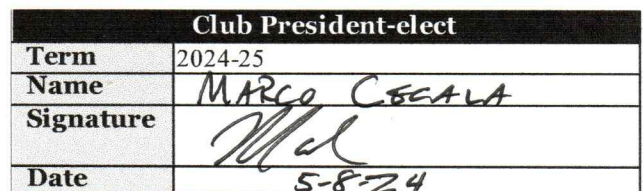 Club President-elect
Term 2024-25
Name MARCO CEGALA
Signature
Date 5-8-24